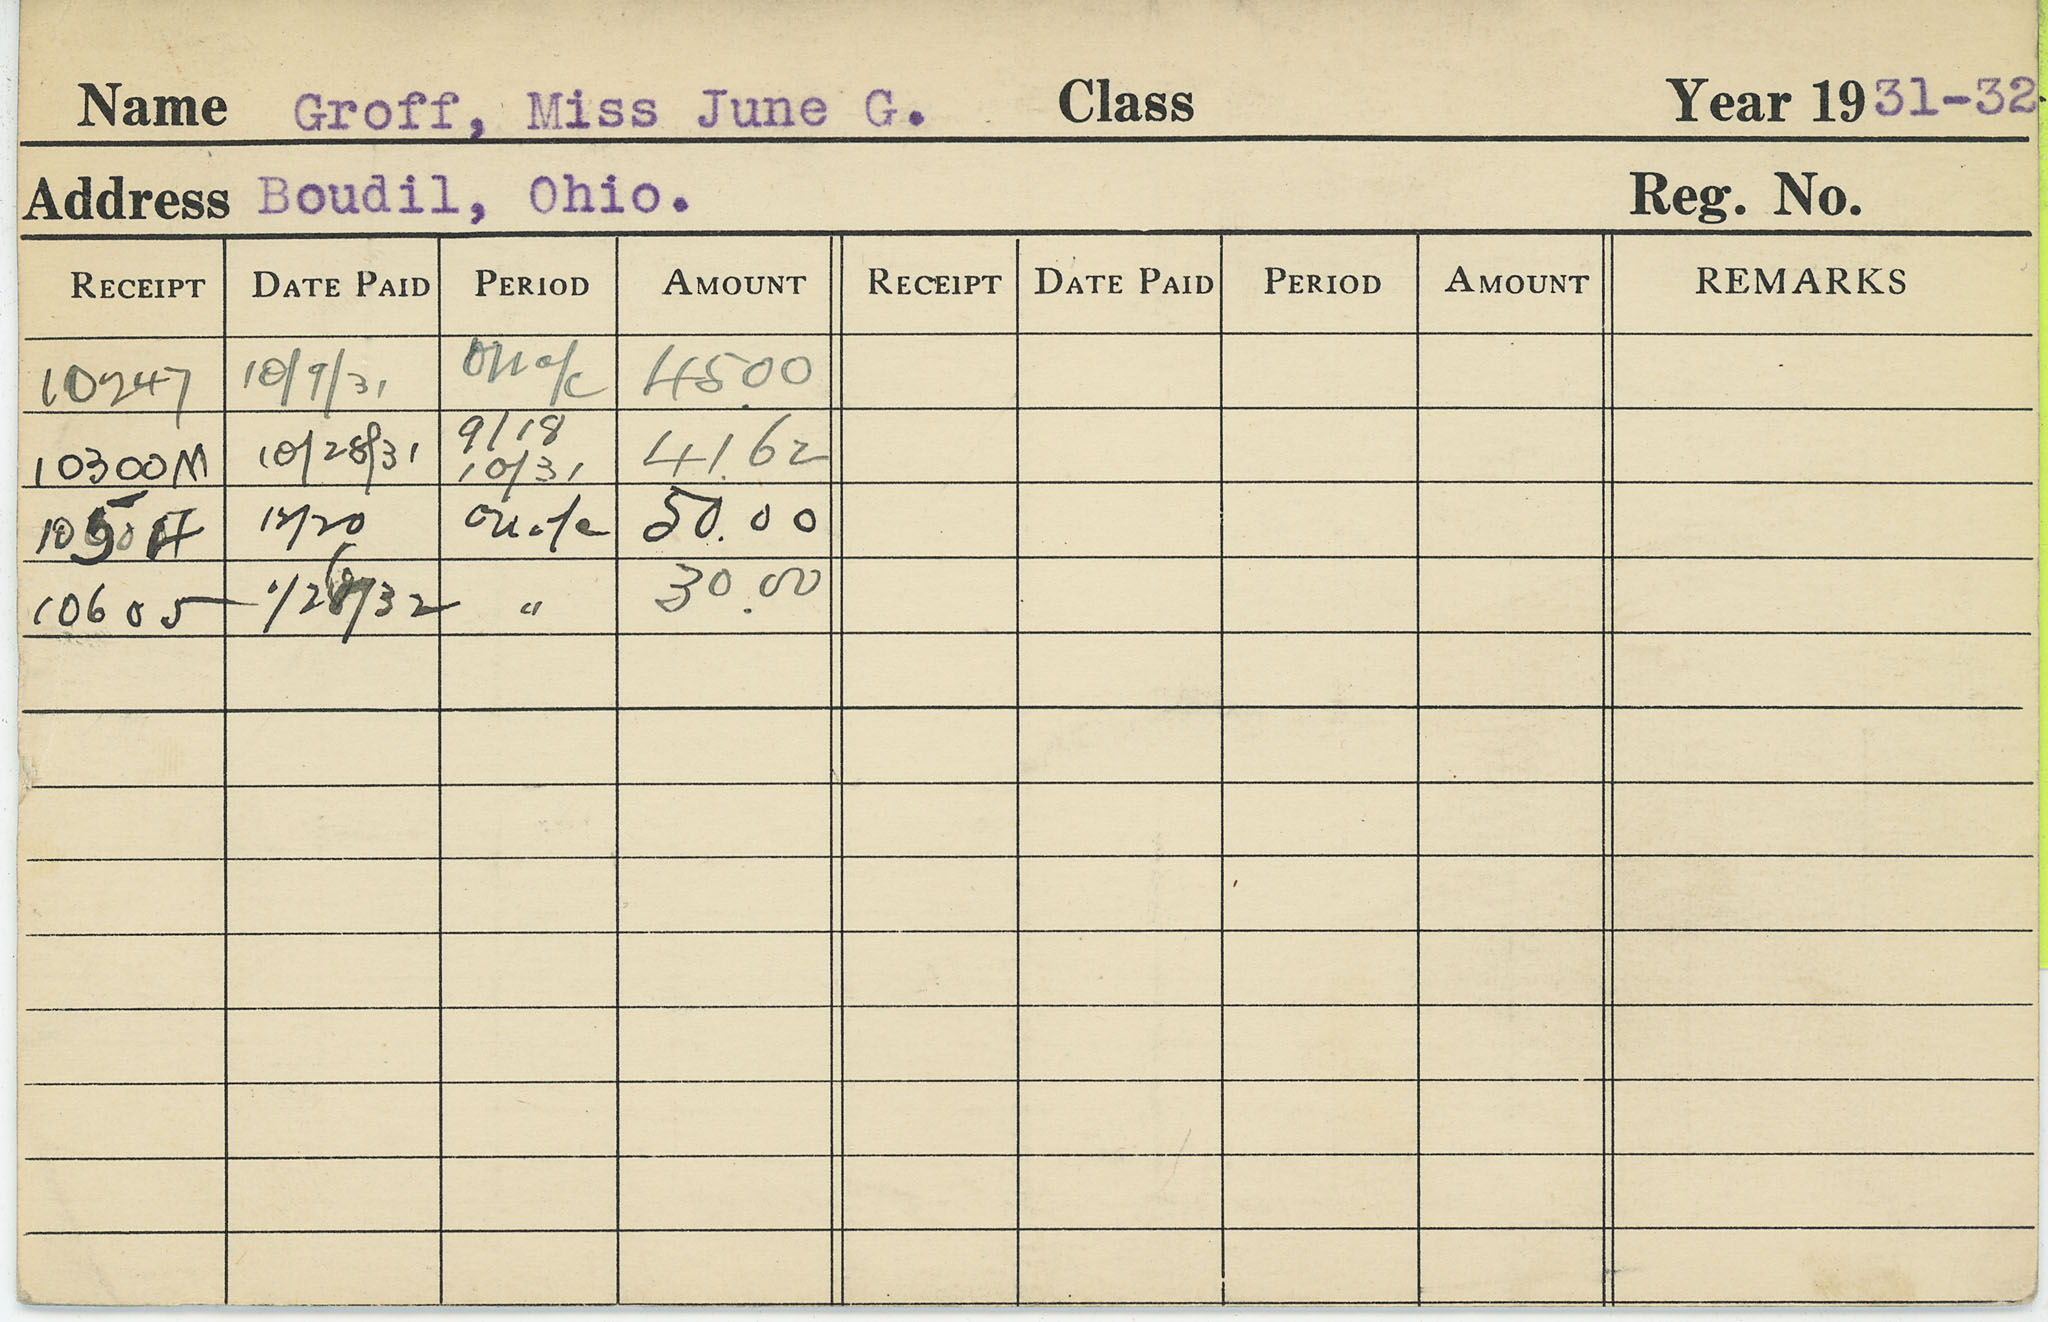 Name Groff, Miss June G. Class Year 1931-32
Address Boudil, Ohio. Reg. No.
RECEIPT DATE PAID PERIOD AMOUNT RECEIPT DATE PAID PERIOD AMOUNT REMARKS
10247 10/9/31 on a/c 45.00
10300M 10/28/31 9/18 10/31 41.62
12/20 on a/c 50.00
10605 1/28/32 " 30.00